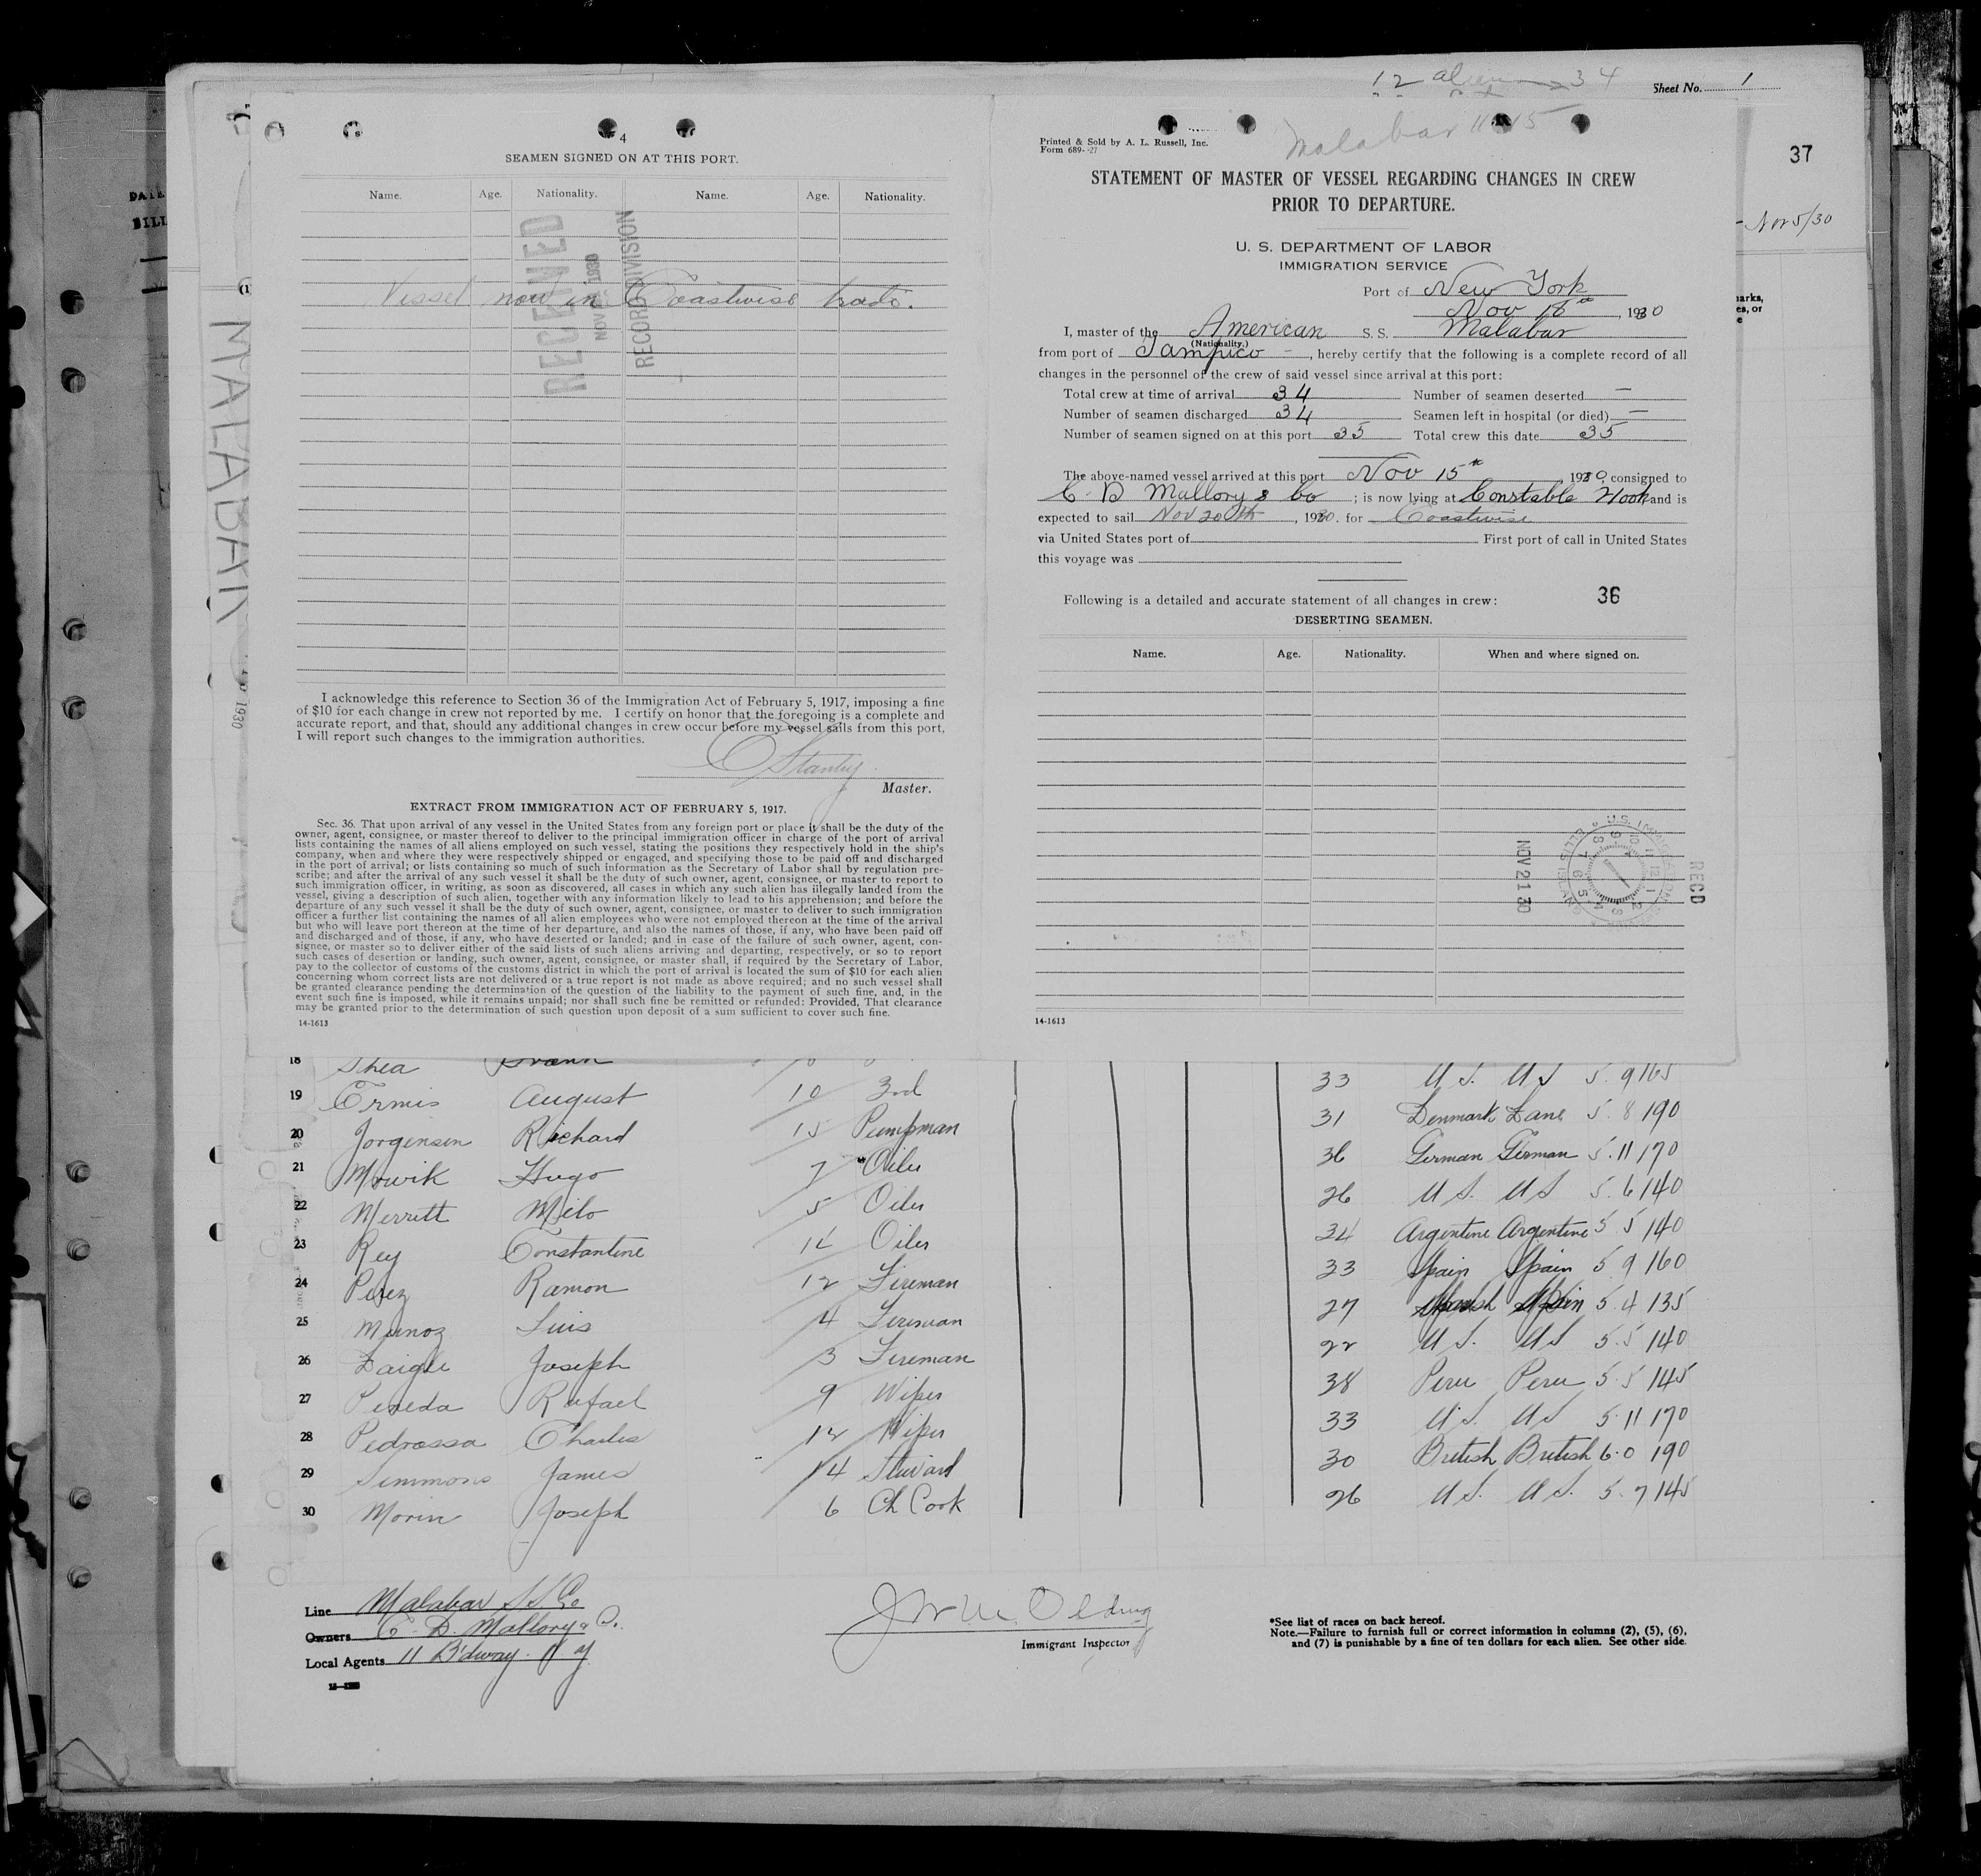 12 alien 34
Sheet No. 1
37
Nov 5/30
MALABAR
1930
4
SEAMEN SIGNED ON AT THIS PORT.
Name. Age. Nationality. Name. Age. Nationality.
RECEIVED
NOV 1930
RECORD DIVISION
Vessel now in Coastwise trade.
I acknowledge this reference to Section 36 of the Immigration Act of February 5, 1917, imposing a fine
of $10 for each change in crew not reported by me. I certify on honor that the foregoing is a complete and
accurate report, and that, should any additional changes in crew occur before my vessel sails from this port,
I will report such changes to the immigration authorities.
Master.
EXTRACT FROM IMMIGRATION ACT OF FEBRUARY 5, 1917.
Sec. 36. That upon arrival of any vessel in the United States from any foreign port or place it shall be the duty of the
owner, agent, consignee, or master thereof to deliver to the principal immigration officer in charge of the port of arrival
lists containing the names of all aliens employed on such vessel, stating the positions they respectively hold in the ship's
company, when and where they were respectively shipped or engaged, and specifying those to be paid off and discharged
in the port of arrival; or lists containing so much of such information as the Secretary of Labor shall by regulation pre-
scribe; and after the arrival of any such vessel it shall be the duty of such owner, agent, consignee, or master to report to
such immigration officer, in writing, as soon as discovered, all cases in which any such alien has illegally landed from the
vessel, giving a description of such alien, together with any information likely to lead to his apprehension; and before the
departure of any such vessel it shall be the duty of such owner, agent, consignee, or master to deliver to such immigration
officer a further list containing the names of all alien employees who were not employed thereon at the time of the arrival
but who will leave port thereon at the time of her departure, and also the names of those, if any, who have been paid off
and discharged and of those, if any, who have deserted or landed; and in case of the failure of such owner, agent, con-
signee, or master so to deliver either of the said lists of such aliens arriving and departing, respectively, or so to report
such cases of desertion or landing, such owner, agent, consignee, or master shall, if required by the Secretary of Labor,
pay to the collector of customs of the customs district in which the port of arrival is located the sum of $10 for each alien
concerning whom correct lists are not delivered or a true report is not made as above required; and no such vessel shall
be granted clearance pending the determination of the question of the liability to the payment of such fine, and, in the
event such fine is imposed, while it remains unpaid; nor shall such fine be remitted or refunded: Provided, That clearance
may be granted prior to the determination of such question upon deposit of a sum sufficient to cover such fine.
14-1613
Malabar 11 15
Printed & Sold by A. L. Russell, Inc.
Form 689- -27
STATEMENT OF MASTER OF VESSEL REGARDING CHANGES IN CREW
PRIOR TO DEPARTURE.
U. S. DEPARTMENT OF LABOR
IMMIGRATION SERVICE
Port of New York
Nov 18th, 1930
I, master of the American S. S. Malabar
(Nationality.)
from port of Tampico -, hereby certify that the following is a complete record of all
changes in the personnel of the crew of said vessel since arrival at this port:
Total crew at time of arrival 34 Number of seamen deserted —
Number of seamen discharged 34 Seamen left in hospital (or died) —
Number of seamen signed on at this port 35 Total crew this date 35
The above-named vessel arrived at this port Nov 15th, 1930, consigned to
C. D Mallory & Co; is now lying at Constable Hook and is
expected to sail Nov 20th, 1930. for Coastwise
via United States port of First port of call in United States
this voyage was
Following is a detailed and accurate statement of all changes in crew: 36
DESERTING SEAMEN.
Name. Age. Nationality. When and where signed on.
REC'D
NOV 21 30
14-1613
18 Shea Frank 33 U S. U S 5. 9 165
19 Ermis August 10 3rd 31 Denmark Dane 5. 8 190
20 Jorgensen Richard 15 Pumpman 36 German German 5. 11 170
21 Mowik Hugo 7 Oiler 26 U S. U S 5. 6 140
22 Merritt Milo 5 Oiler 34 Argentine Argentine 5 5 140
23 Rey Constantine 14 Oiler 33 Spain Spain 5 9 160
24 Perez Ramon 12 Fireman 27 Spain 5. 4 135
25 Munoz Luis 4 Fireman 22 U S U S 5. 5 140
26 Daigle Joseph 3 Fireman 38 Peru Peru 5 5 145
27 Pereda Rafael 9 Wiper 33 U. S. U S 5. 11 170
28 Pedrossa Charles 12 Wiper 30 British British 6. 0 190
29 Simmons James 14 Steward 26 U S. U S. 5. 7 145
30 Morin Joseph 6 Ch Cook
Line Malabar S S Co
Owners C. D. Mallory & Co.
Local Agents 11 B'dway. N Y
Immigrant Inspector
*See list of races on back hereof.
Note.—Failure to furnish full or correct information in columns (2), (5), (6),
and (7) is punishable by a fine of ten dollars for each alien. See other side.